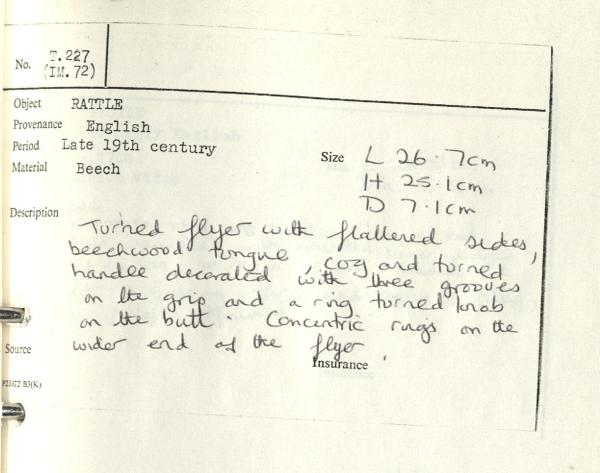 No. T.227
(IM.72)
Object RATTLE
Provenance English
Period Late 19th century
Material Beech
Size L 26.7cm
H 25.1cm
D 7.1cm
Description Turned flyer with flattered sides,
beechwood tongue, cog and turned
handle decorated with three grooves
on the grip and a ring turned knob
on the butt. Concentric rings on the
wider end of the flyer.
Source
Insurance